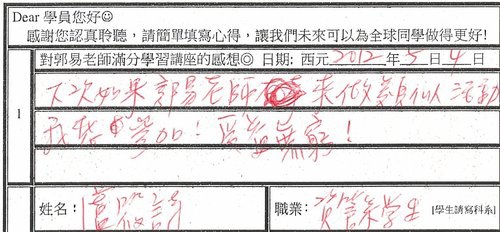 Dear 學員您好☺
感謝您認真聆聽，請簡單填寫心得，讓我們未來可以為全球同學做得更好!
對郭易老師滿分學習講座的感想◎ 日期: 西元 2012 年 5 月 4 日
下次如果郭易老師 來做類似活動
1
我 參加! 受益無窮!
姓名:
職業: 學生 [學生請寫科系]